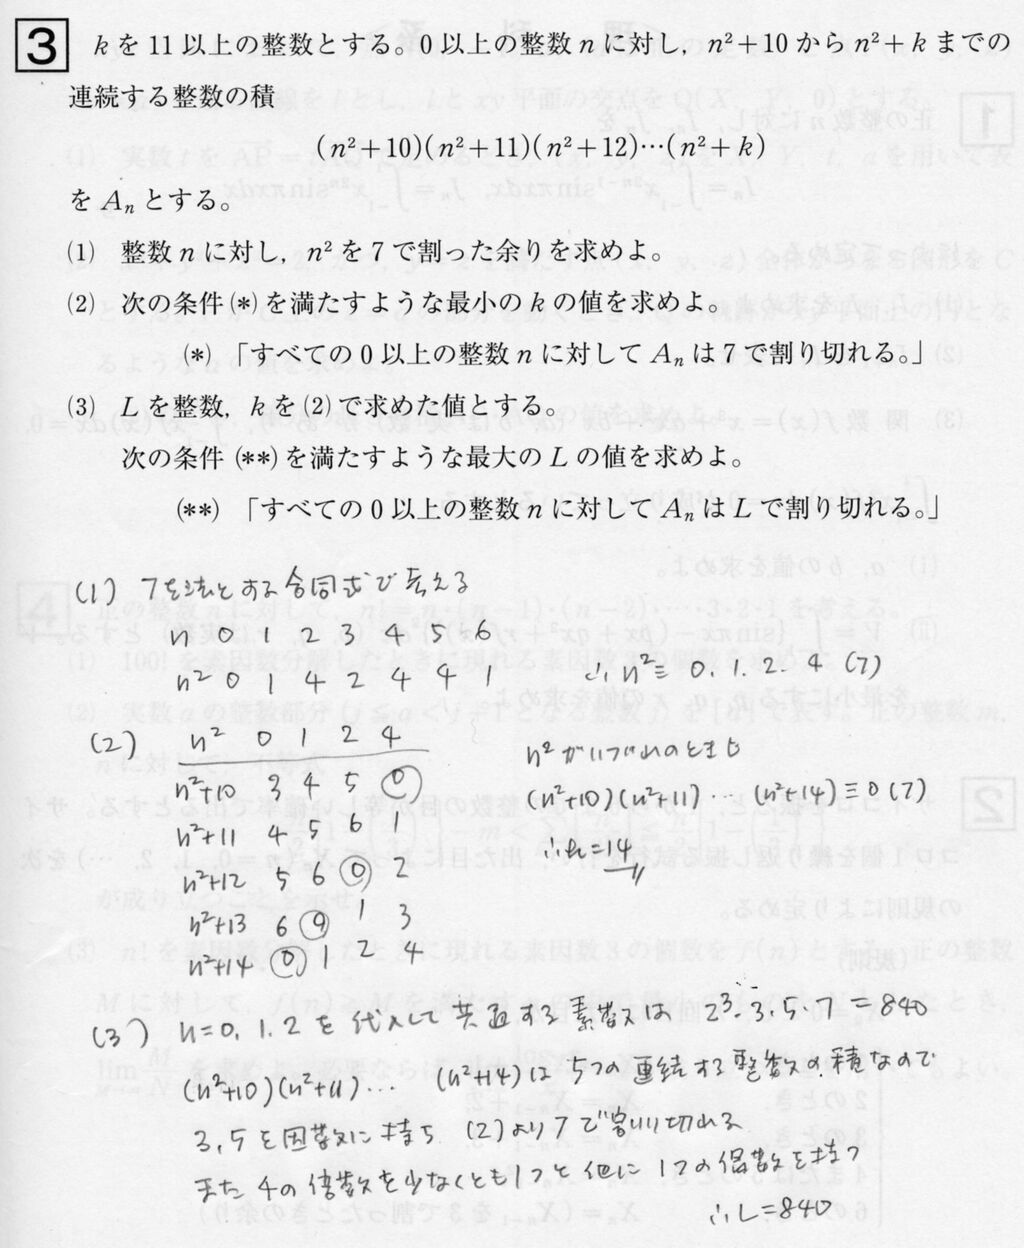 3 kを11以上の整数とする。0以上の整数nに対し, n²+10からn²+kまでの
連続する整数の積
(n²+10)(n²+11)(n²+12)…(n²+k)
をAₙとする。
(1) 整数nに対し, n²を7で割った余りを求めよ。
(2) 次の条件(*)を満たすような最小のkの値を求めよ。
(*) 「すべての0以上の整数nに対してAₙは7で割り切れる。」
(3) Lを整数, kを(2)で求めた値とする。
次の条件(**)を満たすような最大のLの値を求めよ。
(**) 「すべての0以上の整数nに対してAₙはLで割り切れる。」
(1) 7を法とする合同式で考える
n 0 1 2 3 4 5 6
n² 0 1 4 2 4 4 1 ∴n²≡0.1.2.4 (7)
(2) n² 0 1 2 4
n²+10 3 4 5 0
n²+11 4 5 6 1
n²+12 5 6 0 2
n²+13 6 0 1 3
n²+14 0 1 2 4
n²がいづれのときも
(n²+10)(n²+11)… (n²+14)≡0(7)
∴k=14
(3) n=0.1.2を代入して共通する素数は 2³·3·5·7=840
(n²+10)(n²+11)… (n²+14)は5つの連続する整数の積なので
3,5を因数に持ち (2)より7で割り切れる
また4の倍数を少なくとも1つと他に の倍数を持つ
∴L=840